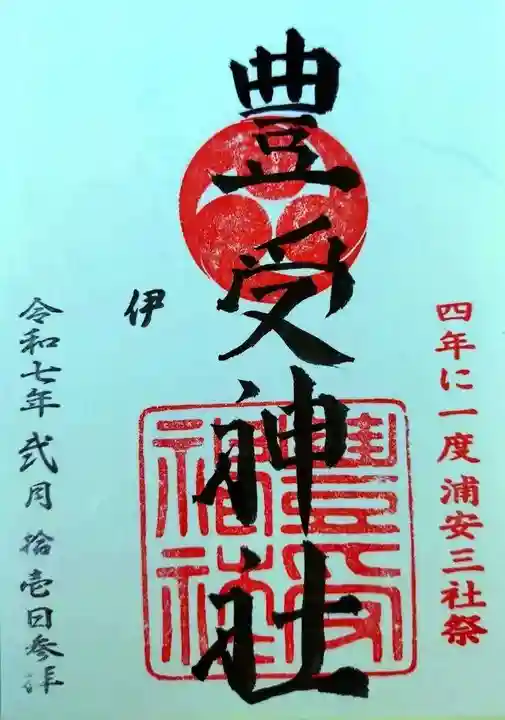 四年に一度浦安三社祭
豊受神社
豊受神社
伊
令和七年弐月拾壱日参拝